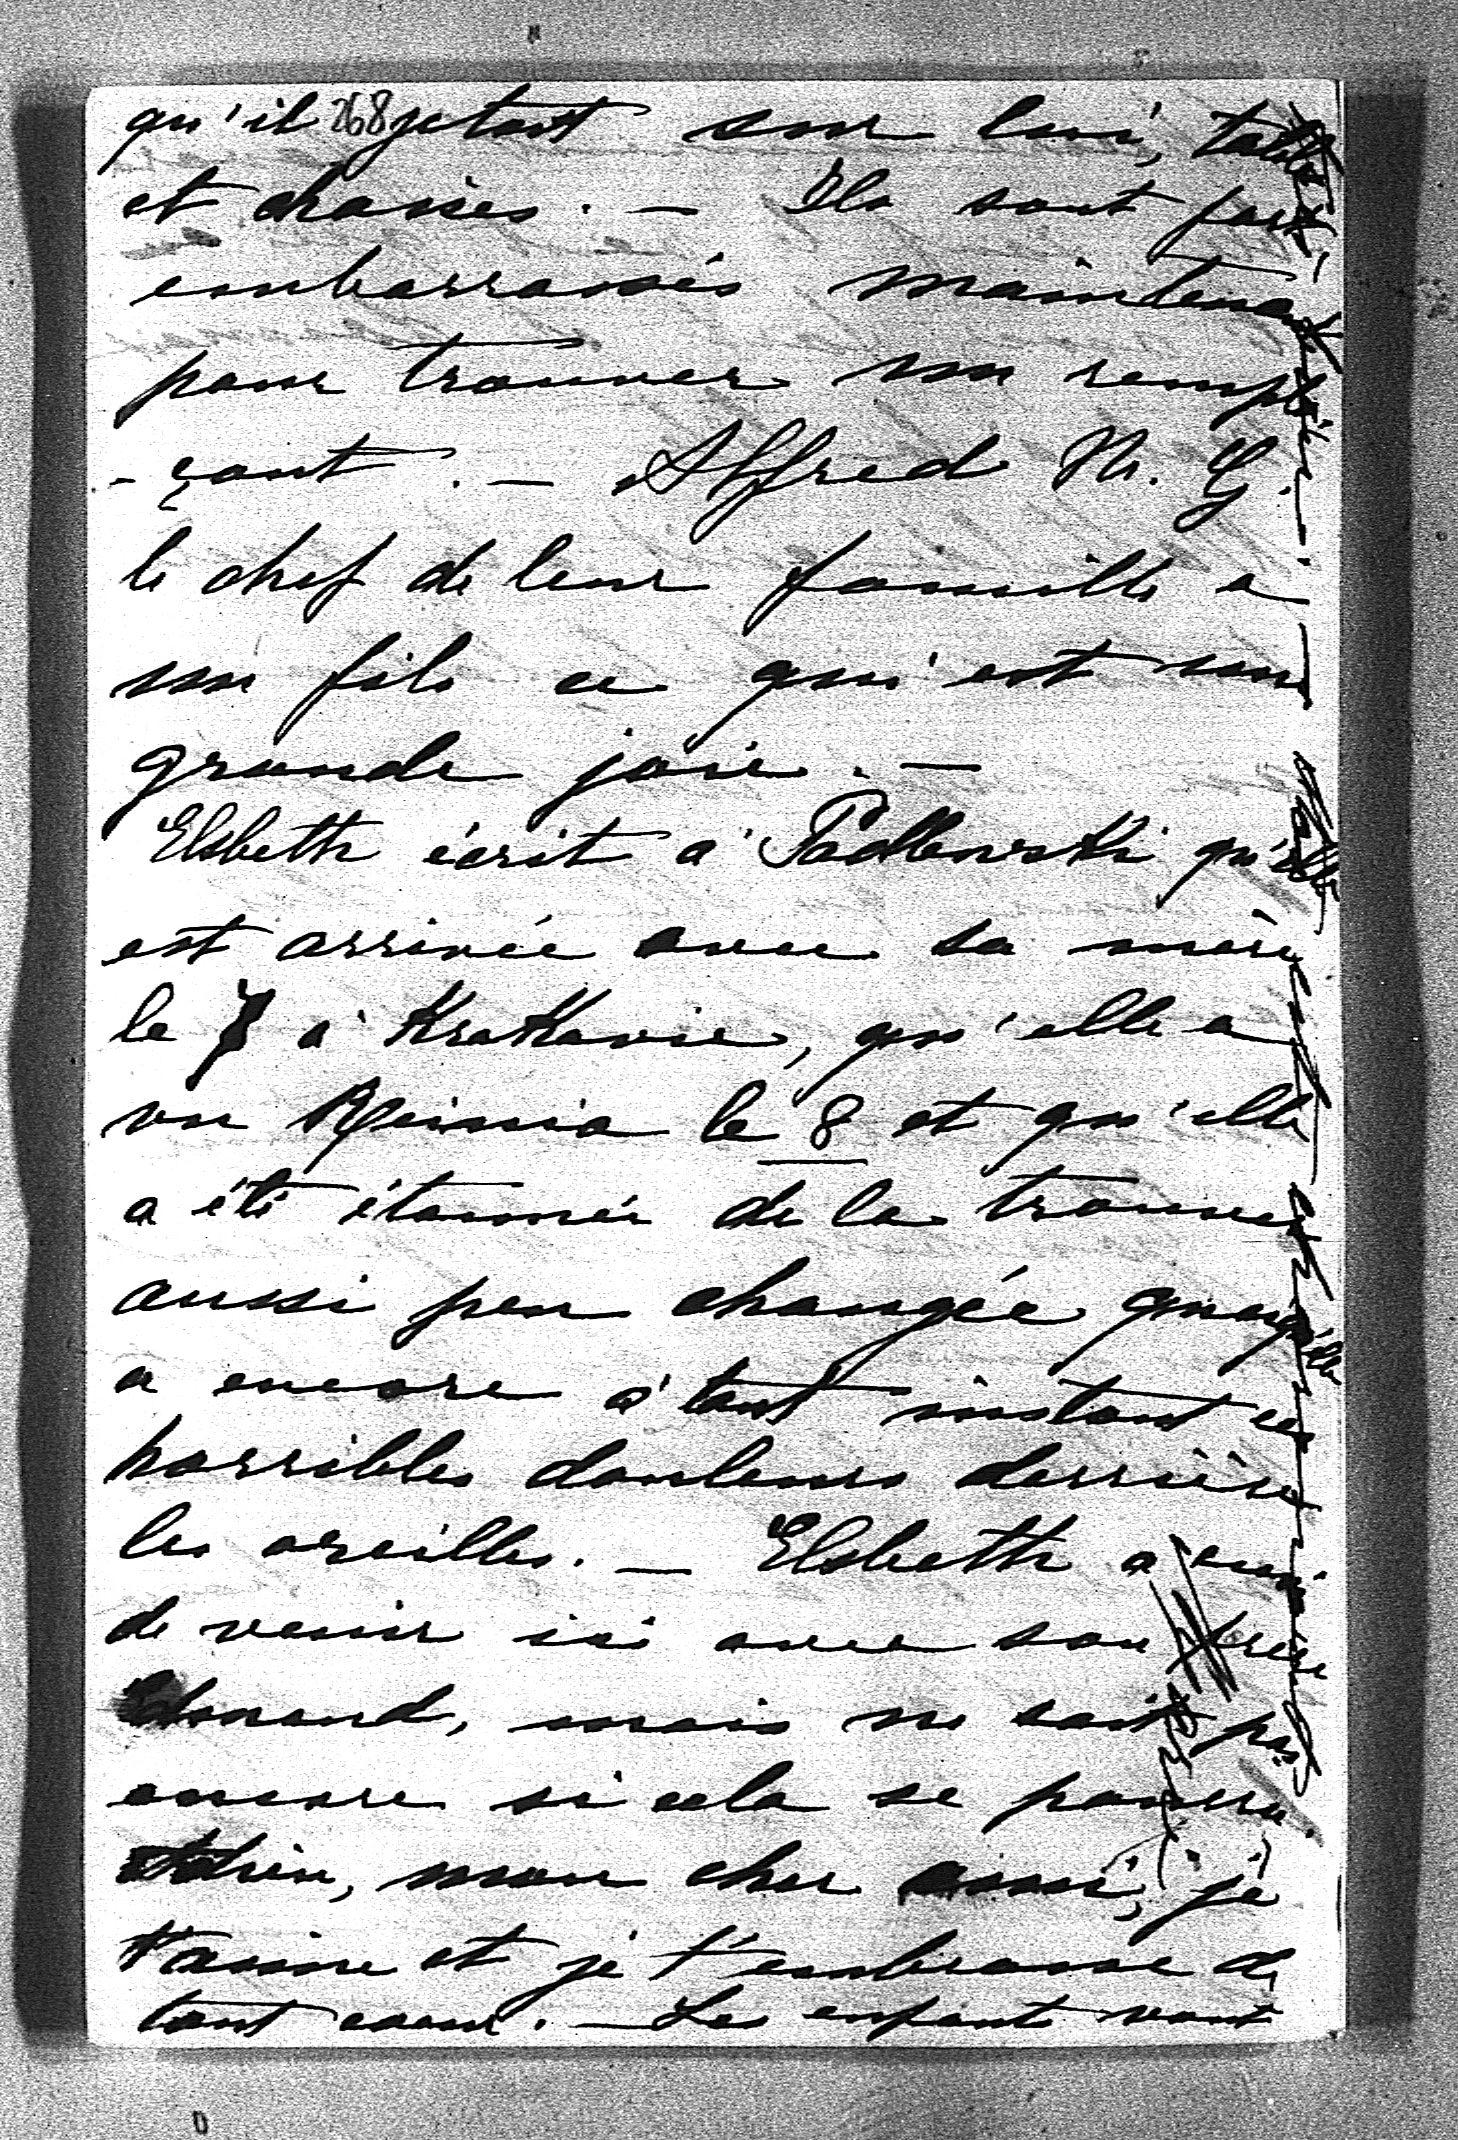 qu'il 268 jetait sur lui, tables
et chaises. — Ils sont fort
embarrassés maintenant
pour trouver un rempla
- çant. — Alfred N. G.
le chef de leur famille a
un fils ce qui est une
grande joie. —
Elsbeth écrit à Padlewski qu'elle
est arrivée avec sa mère
le 7 à Krakovie, qu'elle a
vu Reinia le 8 et qu'elle
a été étonnée de la trouver
aussi peu changée quoiqu'elle
a encore à tout instant ces
horribles douleurs derrière
les oreilles. — Elsbeth a envie
de venir ici avec son frère
Edmond, mais ne sait pas
encore si cela se pourra.
Adieu, mon cher ami, je
t'aime et je t'embrasse de
tout coeur. — Les enfants vont